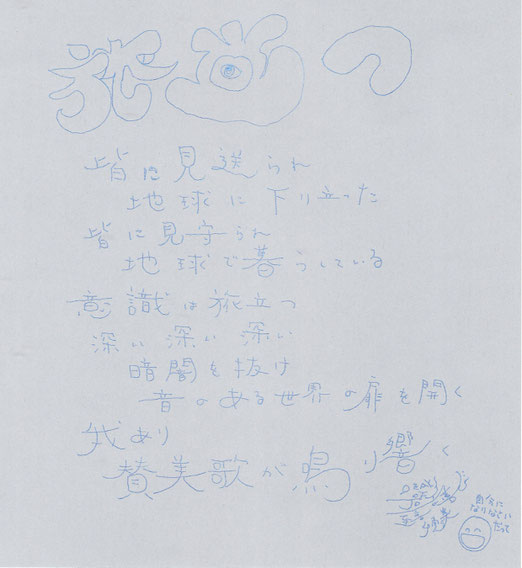 旅立つ
皆に見送られ
地球に下り立った
皆に見守られ
地球で暮らしている
意識は旅立つ
深い深い深い
暗闇を抜け
音のある世界の扉を開く
我あり
賛美歌が鳴り響く
自分に
なりなさい
だって